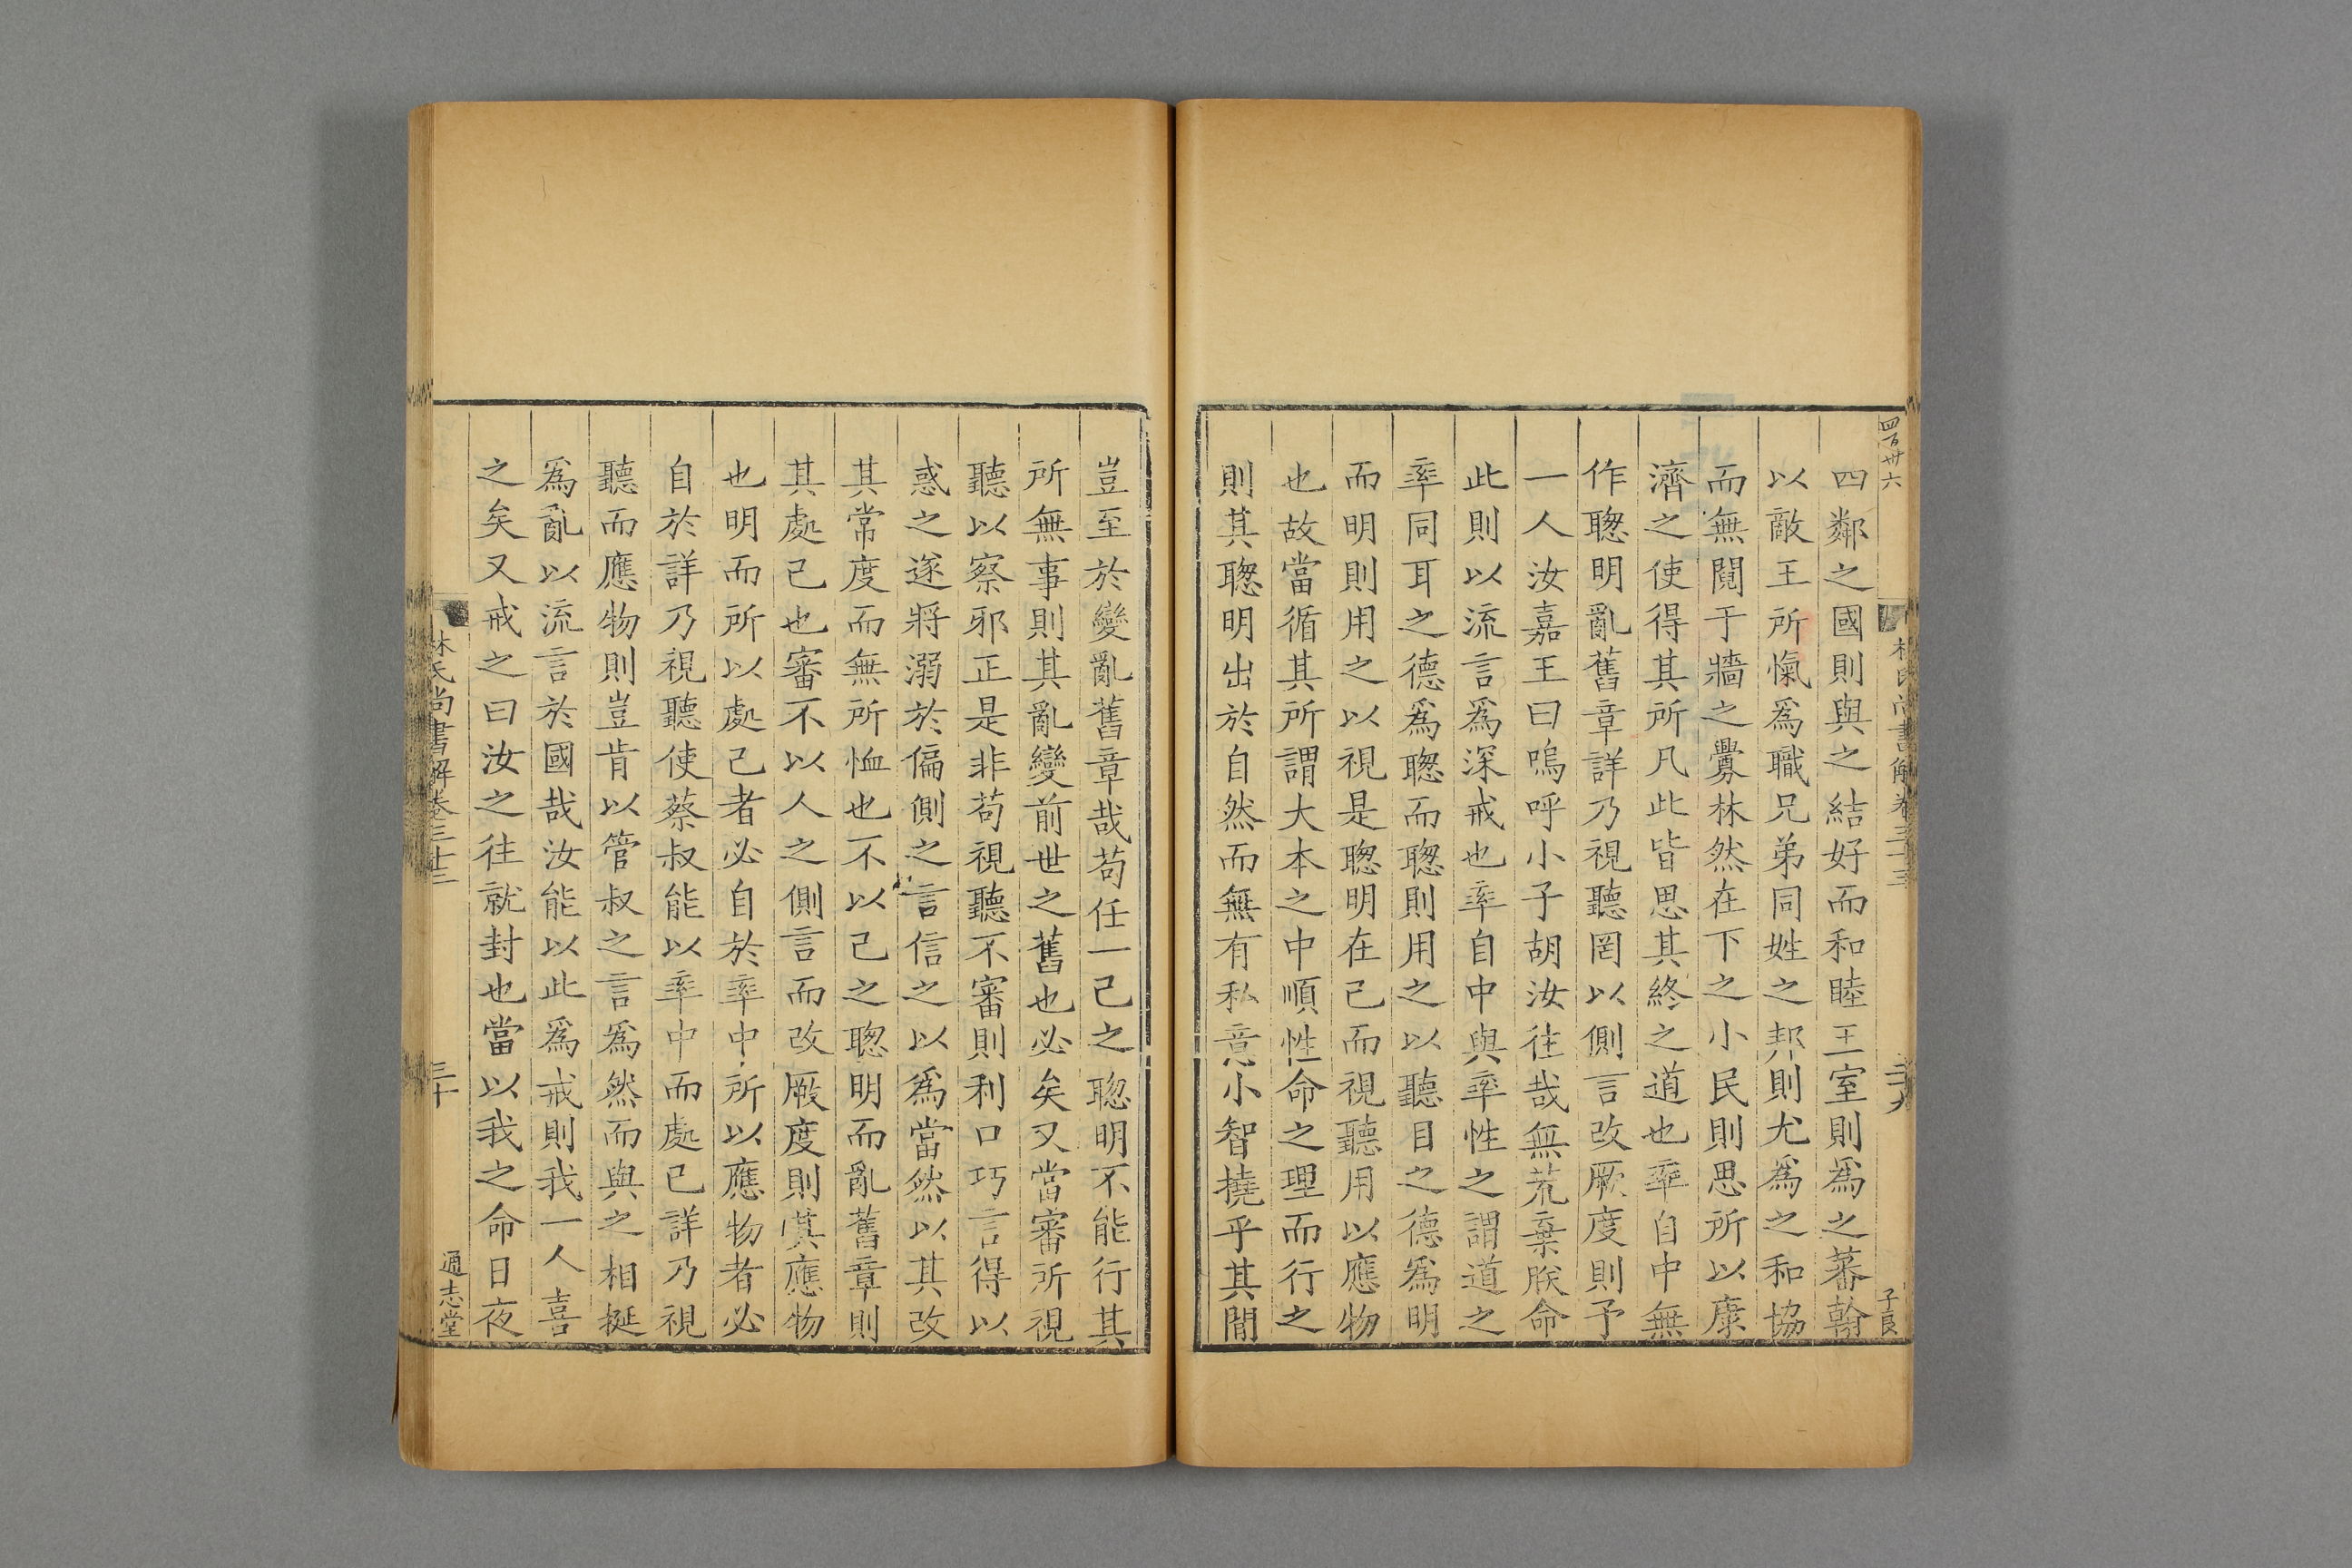 四百廿六
林氏尚書解卷三十三
二十九
子良
四鄰之國則與之結好而和睦王室則爲之蕃翰
以敵王所愾爲職兄弟同姓之邦則尤爲之和協
而無鬩于牆之釁林然在下之小民則思所以康
濟之使得其所凡此皆思其終之道也率自中無
作聦明亂舊章詳乃視聽罔以側言改厥度則予
一人汝嘉王曰嗚呼小子胡汝往哉無荒棄朕命
此則以流言爲深戒也率自中與率性之謂道之
率同耳之德爲聦而聦則用之以聽目之德爲明
而明則用之以視是聦明在己而視聽用以應物
也故當循其所謂大本之中順性命之理而行之
則其聦明出於自然而無有私意小智撓乎其閒
豈至於變亂舊章哉苟任一己之聦明不能行其
所無事則其亂變前世之舊也必矣又當審所視
聽以察邪正是非苟視聽不審則利口巧言得以
惑之遂將溺於偏側之言信之以爲當然以其改
其常度而無所恤也不以己之聦明而亂舊章則
其處己也審不以人之側言而改厥度則其應物
也明而所以處己者必自於率中所以應物者必
自於詳乃視聽使蔡叔能以率中而處己詳乃視
聽而應物則豈肯以管叔之言爲然而與之相挻
爲亂以流言於國哉汝能以此爲戒則我一人喜
之矣又戒之曰汝之往就封也當以我之命日夜
林氏尚書解卷三十三
三十
通志堂